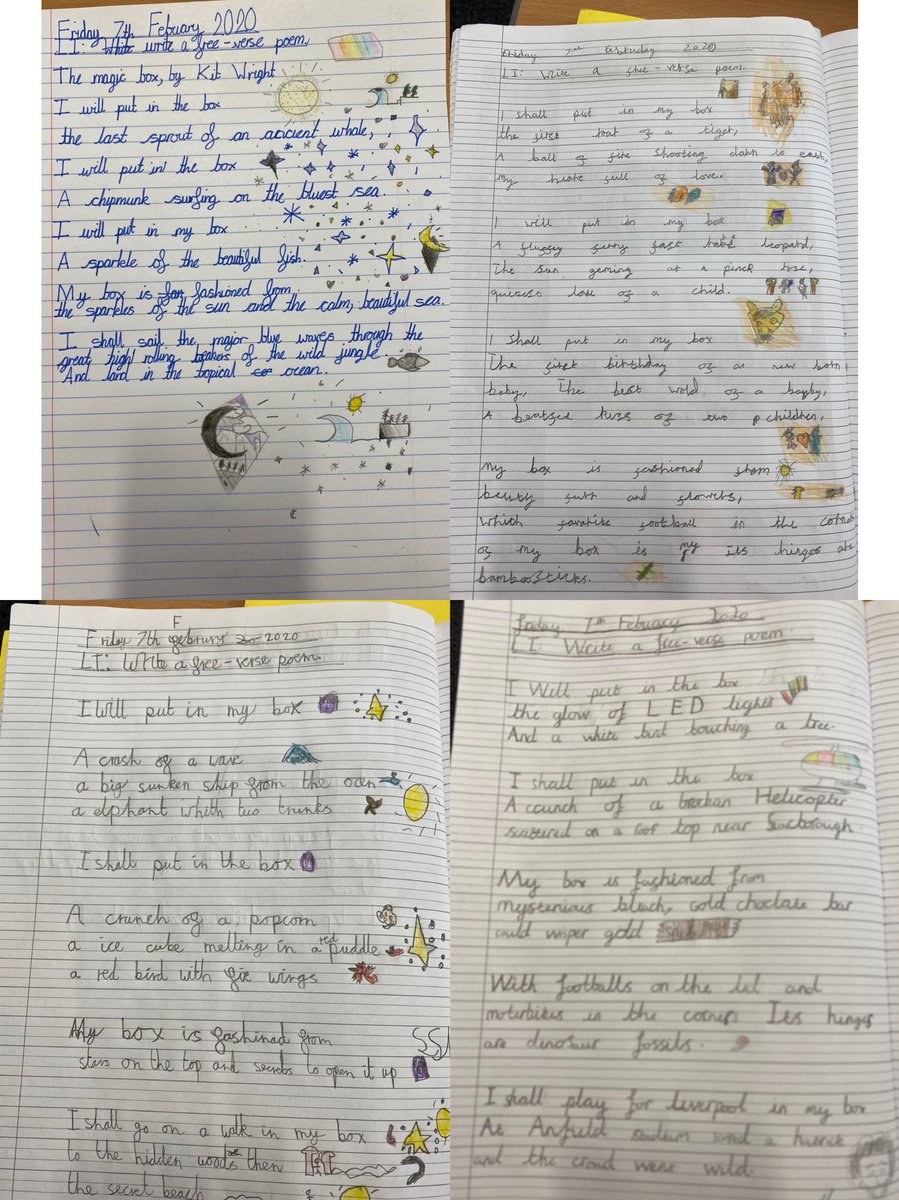 Friday 7th Febuary 2020
LI: White write a free-verse poem.
The magic box, by Kit Wright
I will put in the box
the last sprout of an acicient whale,
I will put in the box
A chipmunk surfing on the bluest sea.
I will put in my box
A sparkle of the beautiful fish.
My box is fan fashioned from
the sparkles of the sun and the calm, beautiful sea.
I shall sail the major blue waves through the
great high rolling breakers of the wild jungle.
And land in the tropical ocean.
Friday 7th 2020
LI: Write a free-verse poem.
I shall put in my box
the first roar of a tiger,
A ball of fire shooting dawn to eash,
My heart full of love.
I will put in my box
A fluggy furry fast leopard,
The sun geming at a pinck rose,
quicest love of a child.
I Shall put in my box
The first birthday of a new born
baby, The best wold of a bayby,
A of two children,
My box is fashioned from
furr and flowers,
Which favorite football in the cornor
of my box is my its hinges are
bamboosticks.
F
Friday 7th gebrury 20 2020
LI: Write a free-verse poem.
I Will put in my box
A crash of a wave
a big sunken ship from the ocen
a elphant whith two trunks
I shall put in the box
A crunch of a popcorn
a ice cube melting in a red puddle
a red bird with fire wings
My box is gashinad from
stars on the top and secrebs to open it up
I shall go on a walk in my box
to the hidden woods then
the secret beach
friday 7th Febuary 2020
LI: Write a free-verse poem.
I Will put in the box
the glow of LED lights
And a white bird touching a tree.
I shall put in the box
A crunch of a brockan Helicopter
scattered on a roof top near Scacborough.
My box is fashioned from
mysterious bleach, Gold choclate bar
could wisper gold
With footballs on the lid and
moterbikes in the corner. Its hinges
are dinosaur fossils.
I shall play for liverpool in my box
At Anfield stadium scored a hatrick
and the crowd were wild.